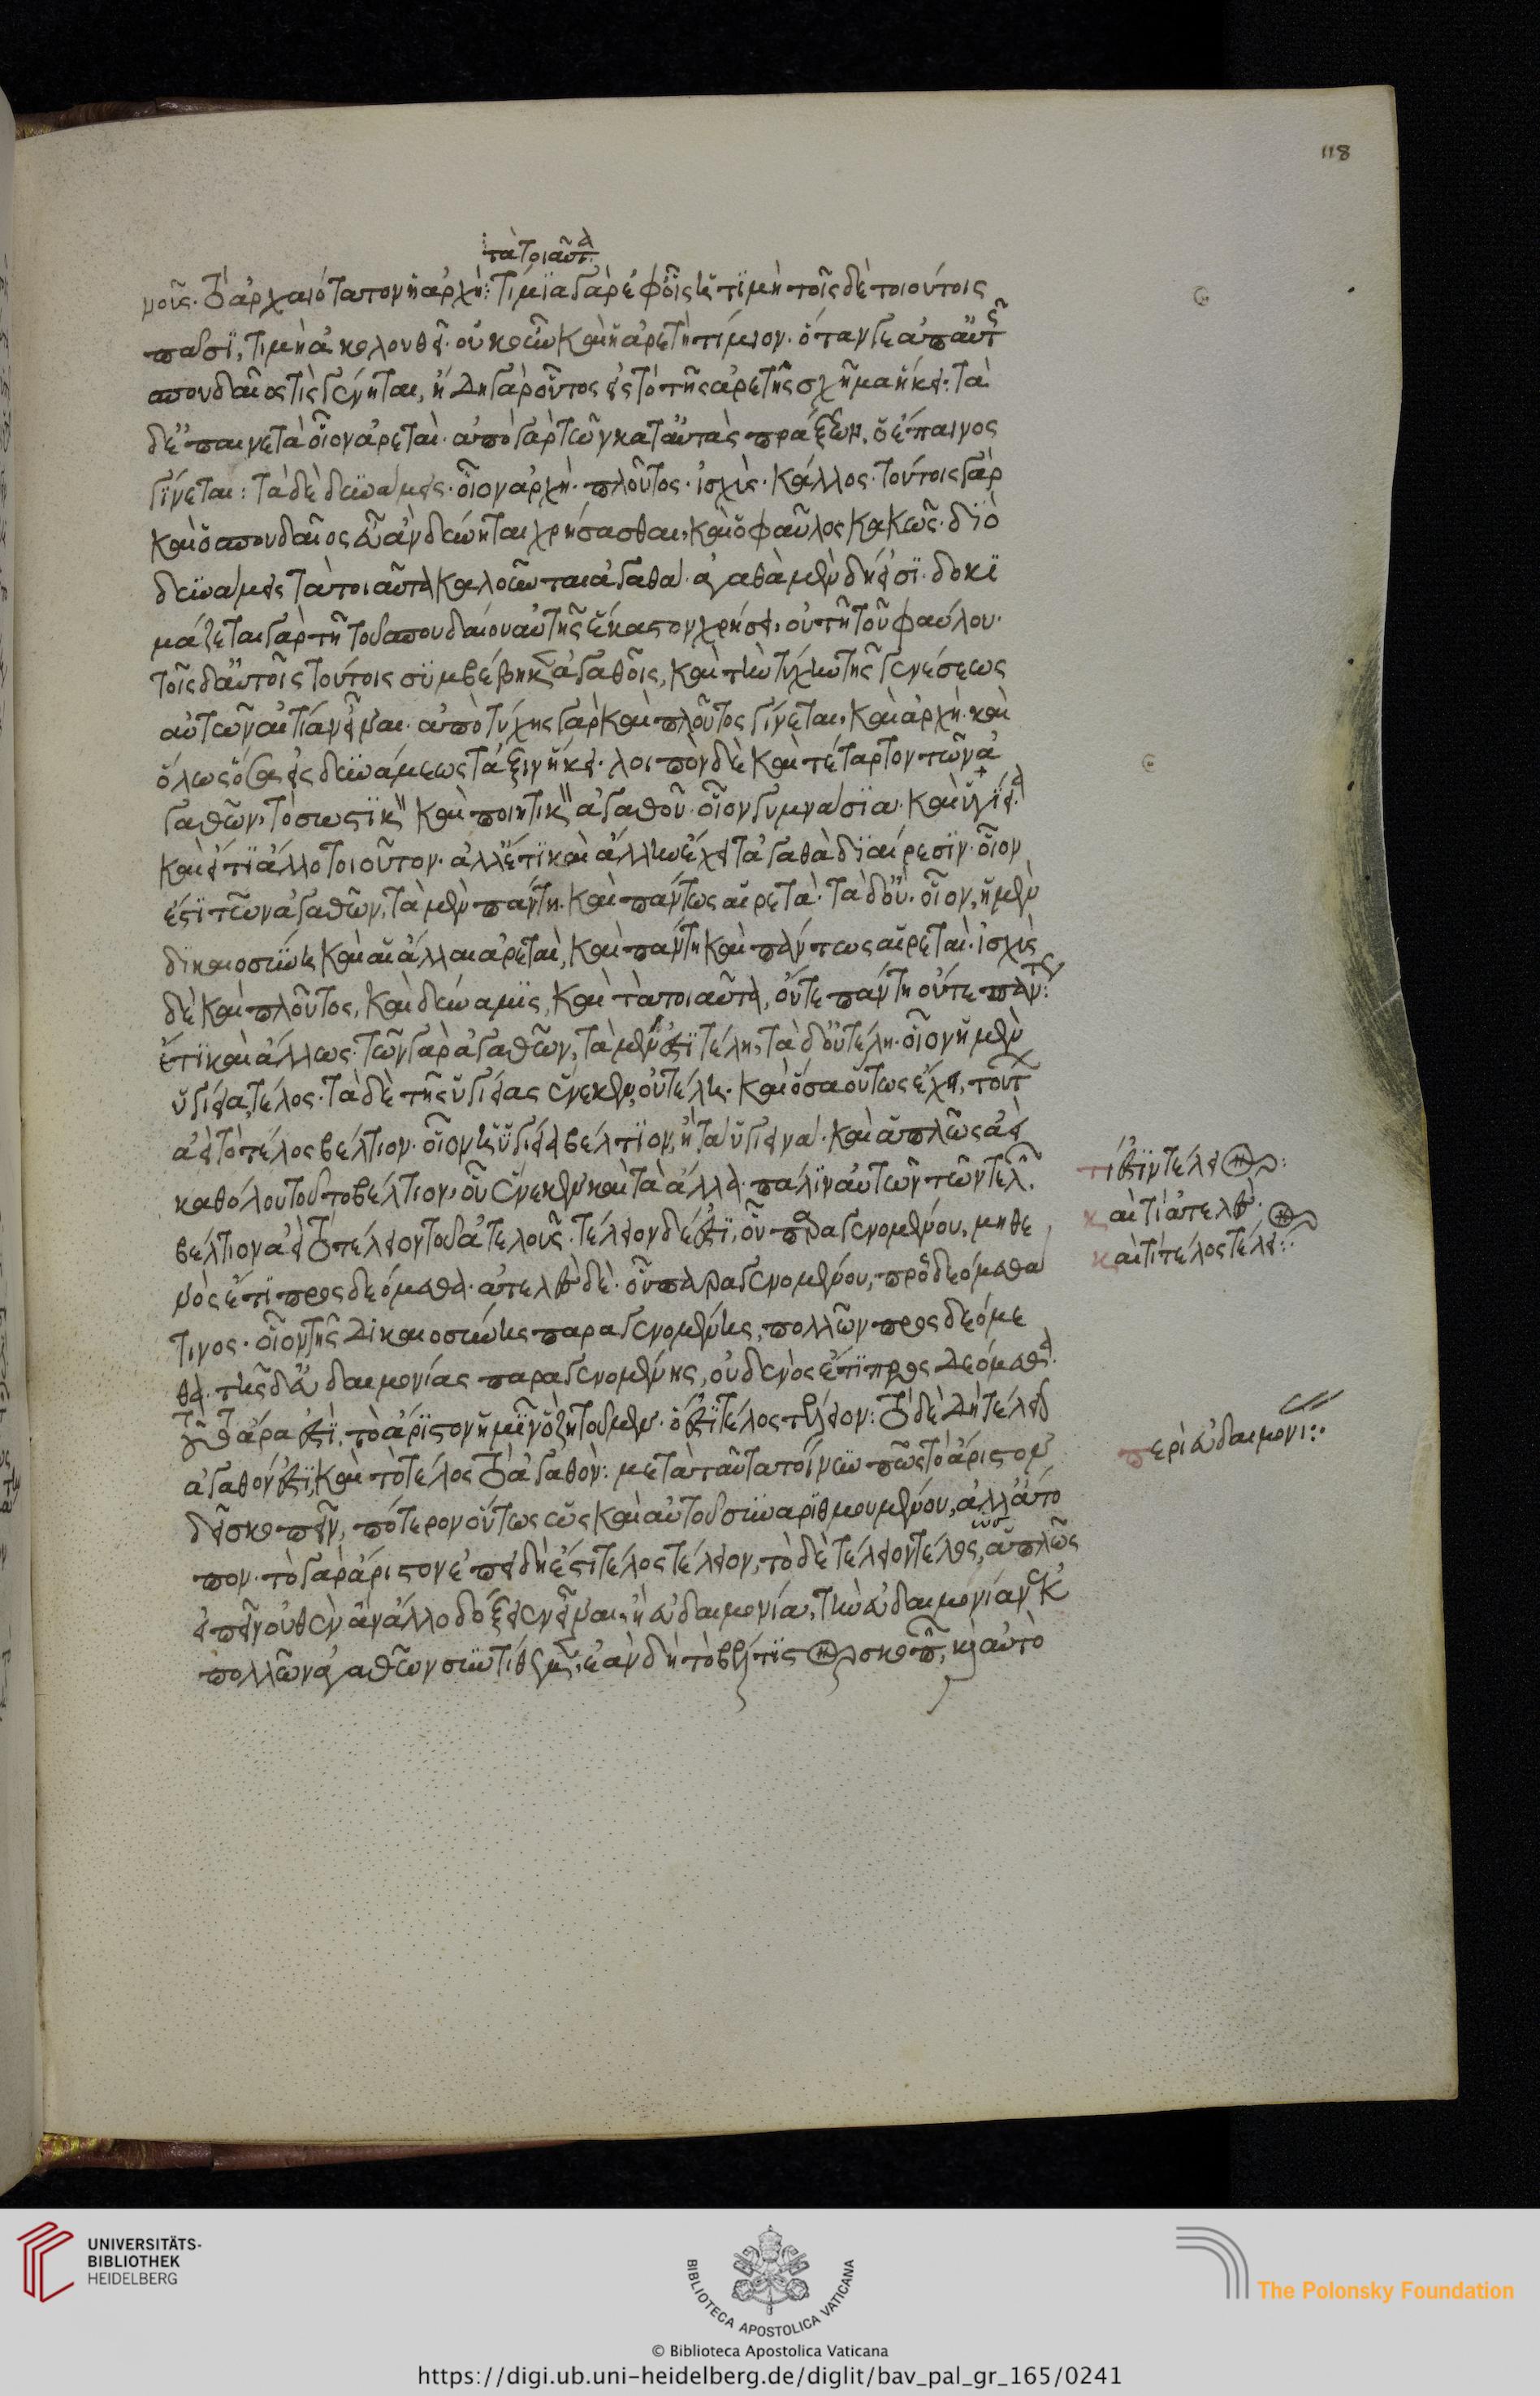 τὰ τοιαῦτα
μοῖς. τὸ ἀρχαιότατον ἡ ἀρχὴ: τίμια γὰρ ἐφ' οἷς ἡ τιμὴ τοῖς δὲ τοιούτοις
πᾶσι, τιμὴ ἀκολουθεῖ. οὐκοῦν καὶ ἡ ἀρετὴ τίμιον. ὅταν γε ἀπ' αὐτῆς
σπουδαῖος τὶς γένηται, ἤδη γὰρ οὗτος εἰς τὸ τῆς ἀρετῆς σχῆμα ἥκει: τὰ
δ' ἐπαινετὰ οἷον ἀρεταί. ἀπὸ γὰρ τῶν κατ' αὐτὰς πράξεων, ὁ ἔπαινος
γίνεται: τὰ δὲ δυνάμεις. οἷον ἀρχὴ. πλοῦτος. ἰσχὺς. κάλλος. τούτοις γὰρ
καὶ ὁ σπουδαῖος εὖ ἂν δύνηται χρήσασθαι, καὶ ὁ φαῦλος κακῶς. διὸ
δυνάμεις τὰ τοιαῦτα καλοῦνται ἀγαθά. ἀγαθὰ μὲν δή εἰσι. δοκι
μάζεται γὰρ τῇ τοῦ σπουδαίου αὐτῆς ἕκαστον χρήσει, οὐ τῇ τοῦ φαύλου.
τοῖς δ' αὐτοῖς τούτοις συμβέβηκεν ἀγαθοῖς, καὶ τὴν τύχην τῆς γενέσεως
αὐτῶν αἰτίαν εἶναι. ἀπὸ τύχης γὰρ καὶ πλοῦτος γίνεται, καὶ ἀρχὴ. καὶ
ὅλως ὅσα εἰς δυνάμεως τάξιν ἥκει. λοιπὸν δὲ καὶ τέταρτον τῶν ἀ
γαθῶν, τὸ σωστικὸν καὶ ποιητικὸν ἀγαθοῦ. οἷον γυμνασία. καὶ ὑγίεια.
καὶ εἴ τι ἄλλο τοιοῦτον. ἀλλ' ἔτι καὶ ἄλλην ἔχει τἀγαθὰ διαίρεσιν. οἷον
ἐστὶ τῶν ἀγαθῶν, τὰ μὲν πάντη. καὶ πάντως αἱρετὰ. τὰ δ' οὔ. οἷον, ἡ μὲν
δικαιοσύνη καὶ αἱ ἄλλαι ἀρεταὶ, καὶ πάντη καὶ πάντως αἱρεταὶ. ἰσχὺς
δὲ καὶ πλοῦτος, καὶ δύναμις, καὶ τὰ τοιαῦτα, οὔτε πάντη οὔτε πάντως:
ἔτι καὶ ἄλλως. τῶν γὰρ ἀγαθῶν, τὰ μέν ἐστι τέλη, τὰ δ' οὐ τέλη. οἷον ἡ μὲν
ὑγίεια, τέλος. τὰ δὲ τῆς ὑγιείας ἕνεκεν, οὐ τέλη. καὶ ὅσα οὕτως ἔχει, τούτων
ἀεὶ τὸ τέλος βέλτιον. οἷον ἡ ὑγίεια βέλτιον, ἢ τὰ ὑγιεινά. καὶ ἁπλῶς ἀεὶ
καθόλου τοῦτο βέλτιον, οὗ ἕνεκεν καὶ τὰ ἄλλα. πάλιν αὐτῶν τῶν τελῶν.
βέλτιον ἀεὶ τὸ τέλειον τοῦ ἀτελοῦς. τέλειον δέ ἐστι, οὗ παραγενομένου, μηθε
νὸς ἔτι προσδεόμεθα. ἀτελὲς δὲ. οὗ παραγενομένου, προσδεόμεθα
τινος. οἷον τῆς δικαιοσύνης παραγενομένης, πολλῶν προσδεόμε
θα. τῆς δ' εὐδαιμονίας παραγενομένης, οὐδενὸς ἔτι προσδεόμεθα.
τοῦτο ἄρα ἐστί, τὸ ἄριστον ἡμῖν ὃ ζητοῦμεν. ὅ ἐστι τέλος τέλειον: τὸ δὲ δὴ τέλειον
ἀγαθόν ἐστι, καὶ τὸ τέλος τὸ ἀγαθὸν: μετὰ ταῦτα τοίνυν πῶς τὸ ἄριστον
δεῖ σκοπεῖν, πότερον οὕτως ὡς καὶ αὐτοῦ συναριθμουμένου, ἀλλ' ἄτο
πον. τὸ γὰρ ἄριστον ἐπειδὴ ἐστὶ τέλος τέλειον, τὸ δὲ τέλειον τέλος, ὡς ἁπλῶς
εἰπεῖν οὐθὲν ἂν ἄλλο δόξειεν εἶναι, ἢ εὐδαιμονία, τὴν εὐδαιμονίαν ἐκ
πολλῶν ἀγαθῶν συντίθεμεν, ἐὰν δὴ τὸ βέλτιστον σκοπῶν, καὶ αὐτὸ
τί ἐστιν τέλειον:
καὶ τί ἀτελὲς:
καὶ τί τέλος τέλειον:
περὶ εὐδαιμονίας:
118
UNIVERSITÄTS-
BIBLIOTHEK
HEIDELBERG
BIBLIOTECA APOSTOLICA VATICANA
The Polonsky Foundation
© Biblioteca Apostolica Vaticana
https://digi.ub.uni-heidelberg.de/diglit/bav_pal_gr_165/0241